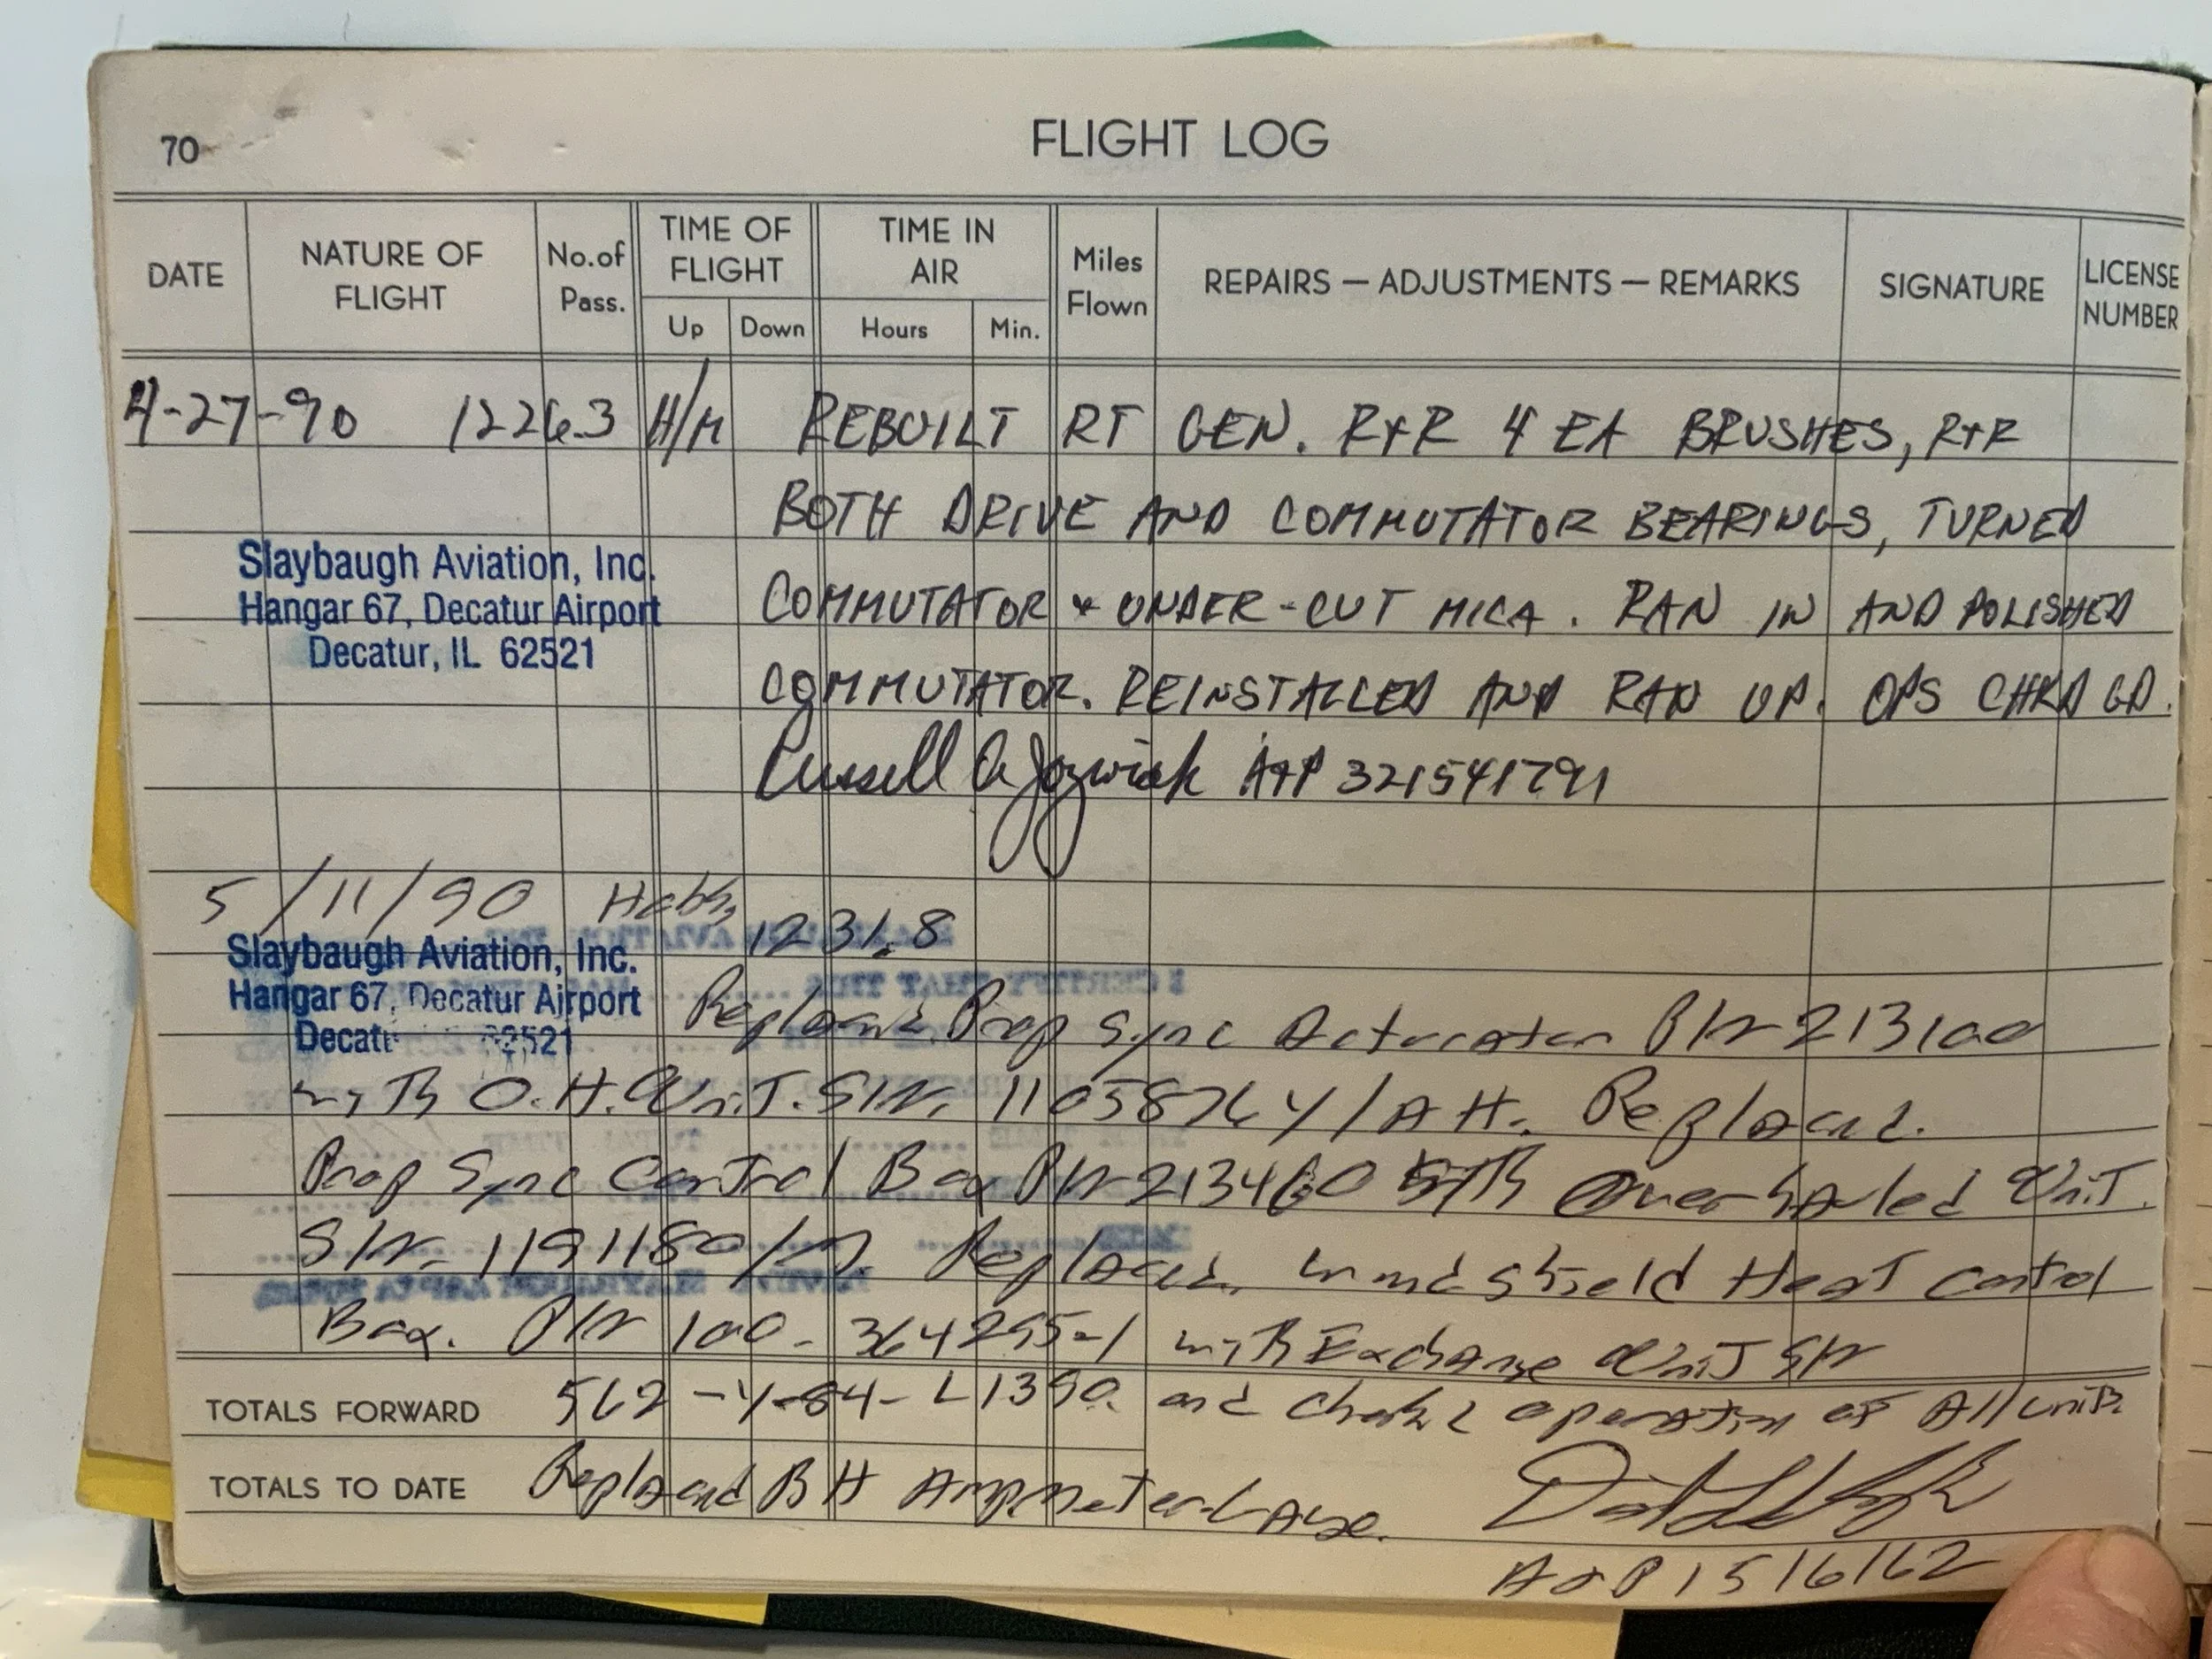 70
FLIGHT LOG
DATE NATURE OF FLIGHT No. of Pass. TIME OF FLIGHT Up Down TIME IN AIR Hours Min. Miles Flown REPAIRS — ADJUSTMENTS — REMARKS SIGNATURE LICENSE NUMBER
4-27-90 1226.3 H/M REBUILT RT GEN. R+R 4 EA BRUSHES, R+R
BOTH DRIVE AND COMMUTATOR BEARINGS, TURNED
Slaybaugh Aviation, Inc.
Hangar 67, Decatur Airport
Decatur, IL 62521
COMMUTATOR + UNDER-CUT MICA. RAN IN AND POLISHED
COMMUTATOR. REINSTALLED AND RAN UP. OPS CHKD GD.
Russell A Jozwiak A+P 321541791
5/11/90 Hobbs
1231.8
Slaybaugh Aviation, Inc.
Hangar 67, Decatur Airport
Decat 62521
Replaced Prop Sync Actuator P/N 213100
with O.H. Unit. S/N. Replaced
Prop Sync Control Box P/N 213460 with Overhauled Unit.
S/N. 1191180/ Replaced Windshield Heat Control
Box. P/N 100-364295-1 with Exchange Unit S/N
TOTALS FORWARD 562 and check operation of All units
TOTALS TO DATE Replaced Ammeter
A&P 1516162